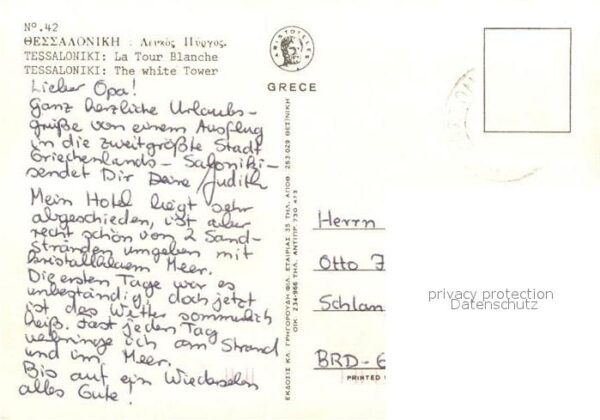 Nº.42
ΘΕΣΣΑΛΟΝΙΚΗ : Λευκός Πύργος.
TESSALONIKI: La Tour Blanche
TESSALONIKI: The white Tower
ARISTOTELES
GRECE
Lieber Opa!
Ganz herzliche Urlaubs-
grüße von einem Ausflug
in die zweitgrößte Stadt
Griechenlands - Saloniki -
sendet Dir Deine Judith
Mein Hotel liegt sehr
abgeschieden, ist aber
recht schön von 2 Sand-
stränden umgeben mit
kristallklarem Meer.
Die ersten Tage war es
unbeständig, doch jetzt
ist das Wetter sommerlich
heiß. Fast jeden Tag
verbringe ich am Strand
und im Meer.
Bis auf ein Wiedersehen
alles Gute!
ΕΚΔΟΣΙΣ ΚΛ. ΓΡΗΓΟΡΟΥΔΗ·ΦΙΛ. ΕΤΑΙΡΙΑΣ 35 ΤΗΛ. ΑΠΟΘ. 263.029 ΘΕΣ)ΝΙΚΗ
ΟΙΚ. 234-966 ΤΗΛ. ΑΝΤΙΠΡ. 730 473
Herrn
Otto
Schlan
BRD-6
PRINTED
privacy protection
Datenschutz